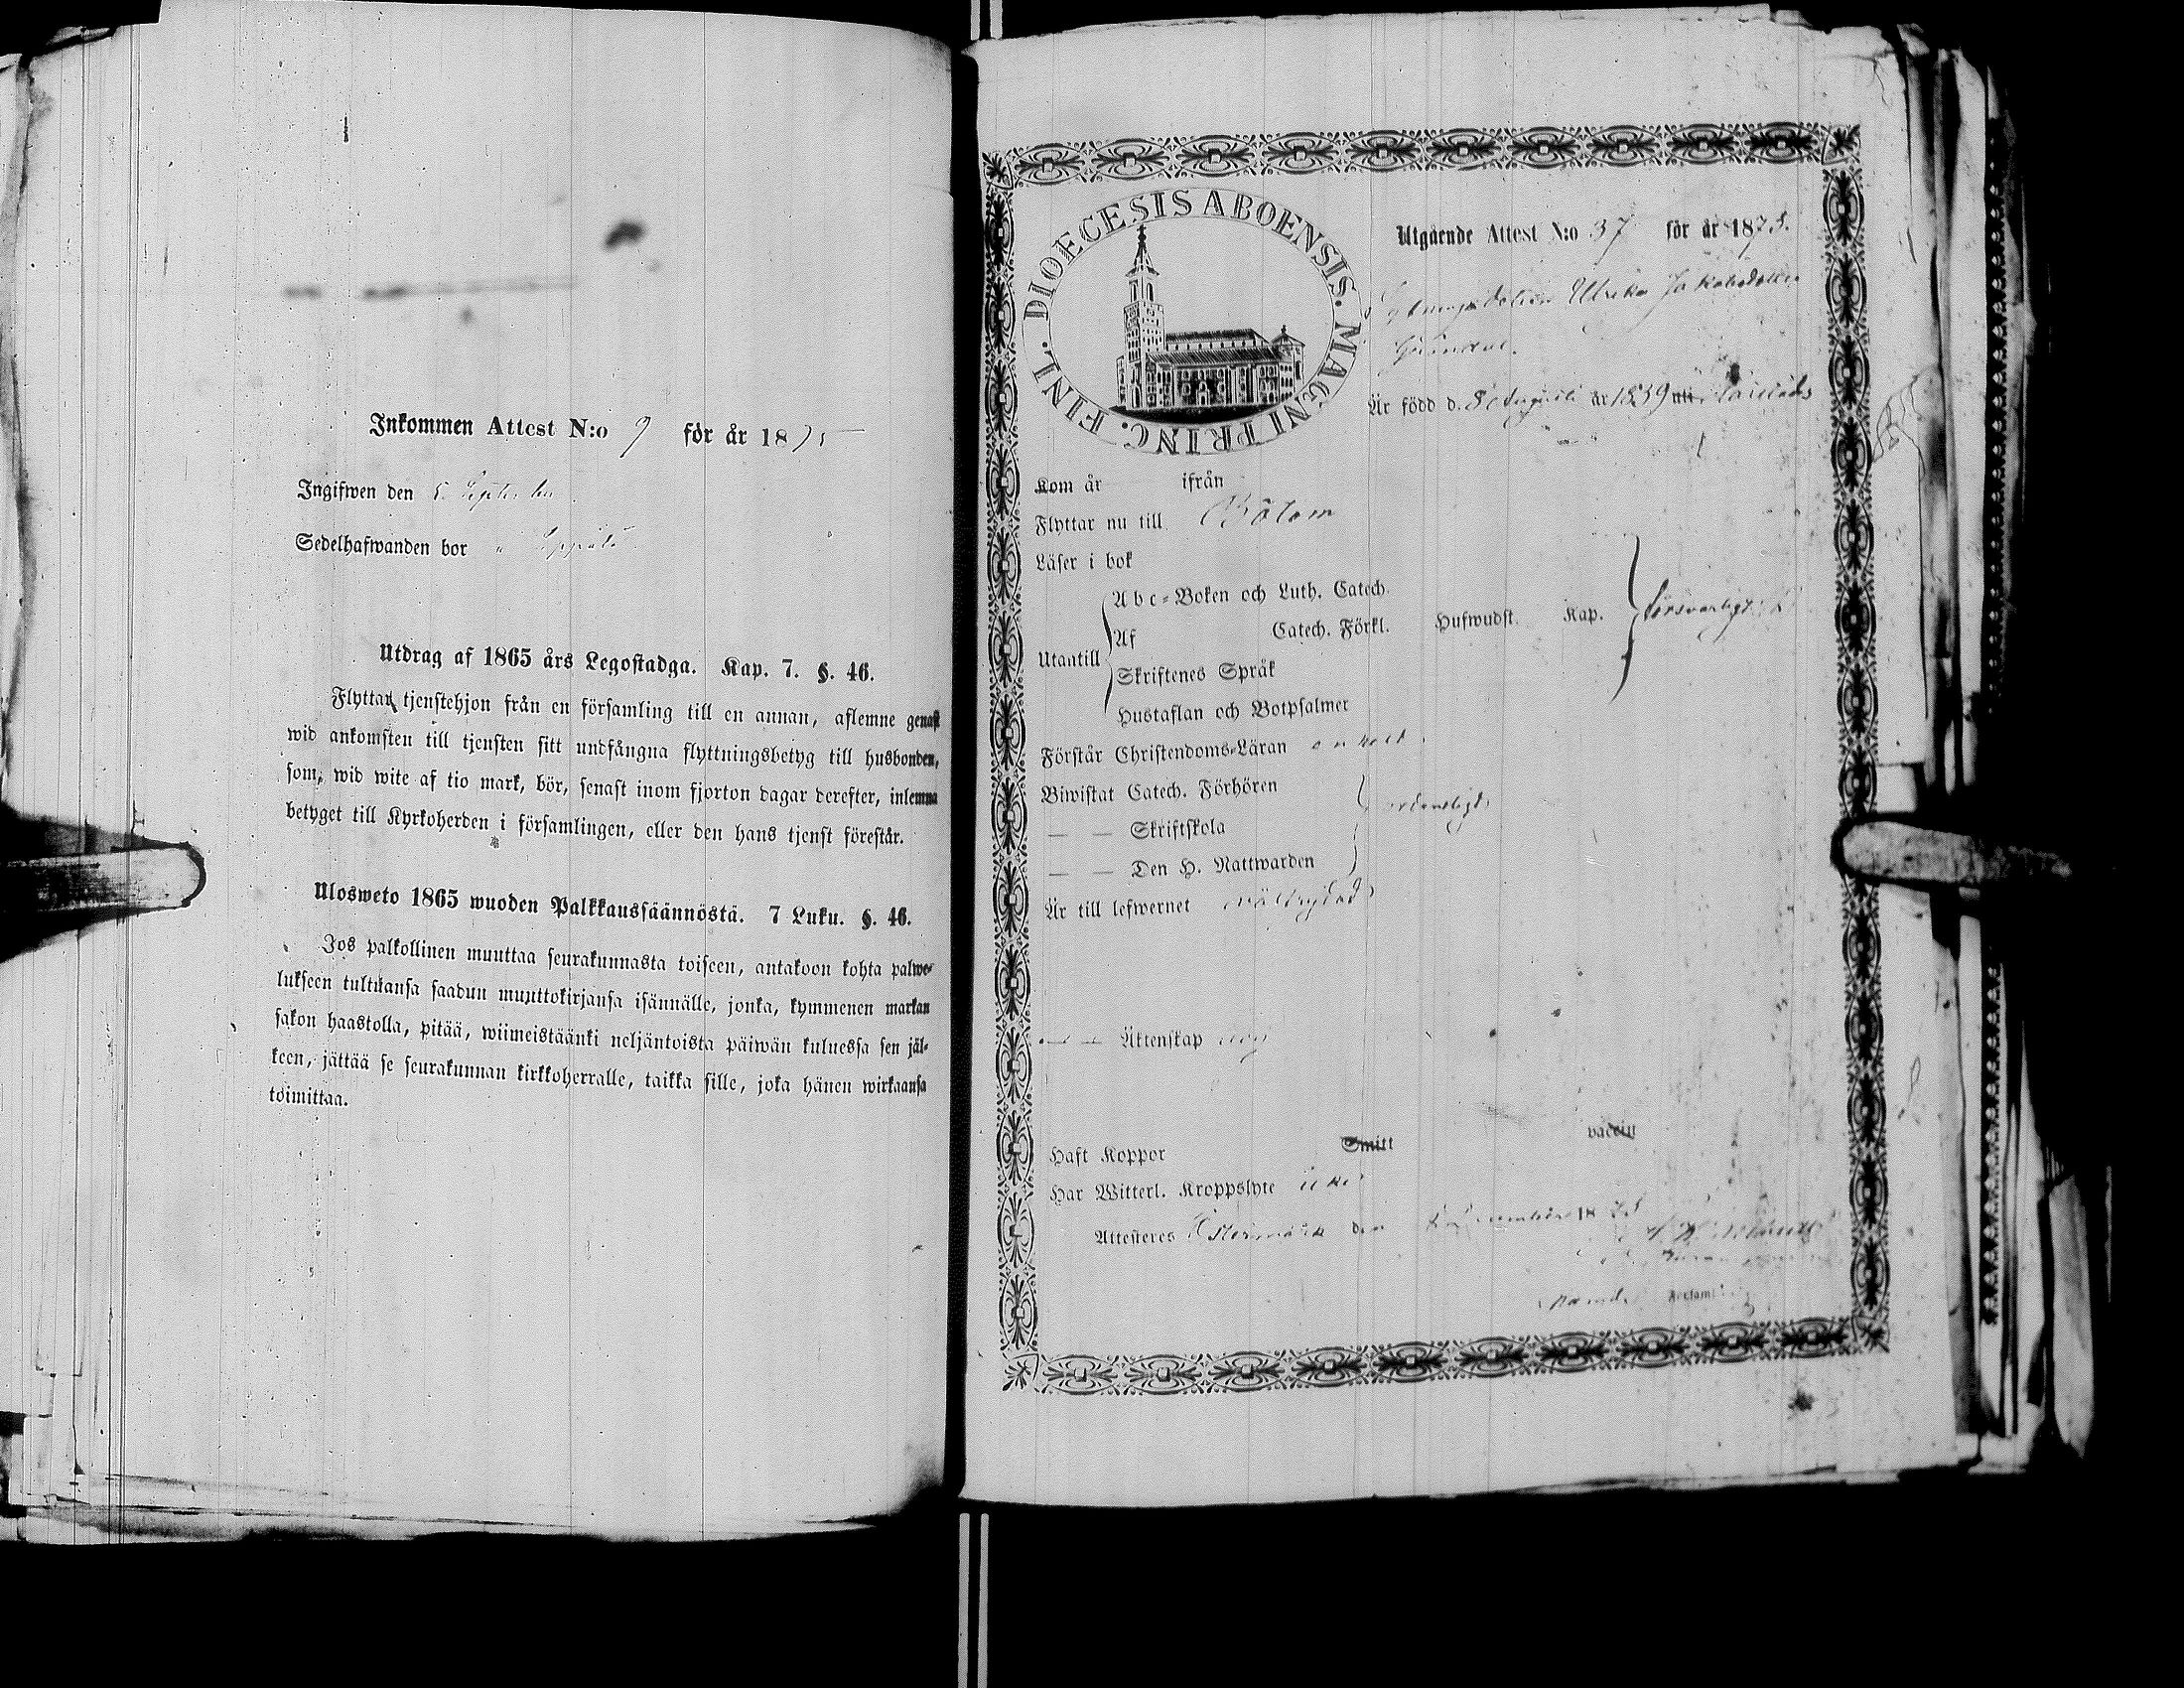 Inkommen Attest N:o 9 för år 1875
Ingifwen den 5 September
Sedelhafwanden bor
Utdrag af 1865 års Legostadga. Kap. 7. §. 46.
Flyttar tjenstehjon från en församling till en annan, aflemne genast
wid ankomsten till tjensten sitt undfångna flyttningsbetyg till husbonden,
som, wid wite af tio mark, bör, senast inom fjorton dagar derefter, inlemna
betyget till Kyrkoherden i församlingen, eller den hans tjenst förestår.
Ulosweto 1865 wuoden Palkkaussäännöstä. 7 Luku. §. 46.
Jos palkollinen muuttaa seurakunnasta toiseen, antakoon kohta palwe-
lukseen tultuansa saadun muuttokirjansa isännälle, jonka, kymmenen markan
sakon haastolla, pitää, wiimeistäänki neljäntoista päiwän kuluessa sen jäl-
keen, jättää se seurakunnan kirkkoherralle, taikka sille, joka hänen wirkaansa
toimittaa.
DIOECESIS ABOENSIS. MAGNI PRINC. FINL.
Utgående Attest N:o 37 för år 1875.
Ulrika Jakobsdotter
Gröndal.
Är född d. 8 Augusti år 1839 uti
Kom år ifrån
Flyttar nu till Bötom
Läser i bok
Abc-Boken och Luth. Catech.
Utantill Af Catech. Förkl. Hufwudst. Kap. försvarligt
Skriftenes Språk
Hustaflan och Botpsalmer
Förstår Christendoms-Läran enkelt.
Biwistat Catech. Förhören
— — Skriftskola ordentligt
— — Den H. Nattwarden
Är till lefwernet wälfrejdad
— — Äktenskap ledig
Haft Koppor Smitt vaccin
Har Witterl. Kroppslyte icke
Attesteras Östermark den 18